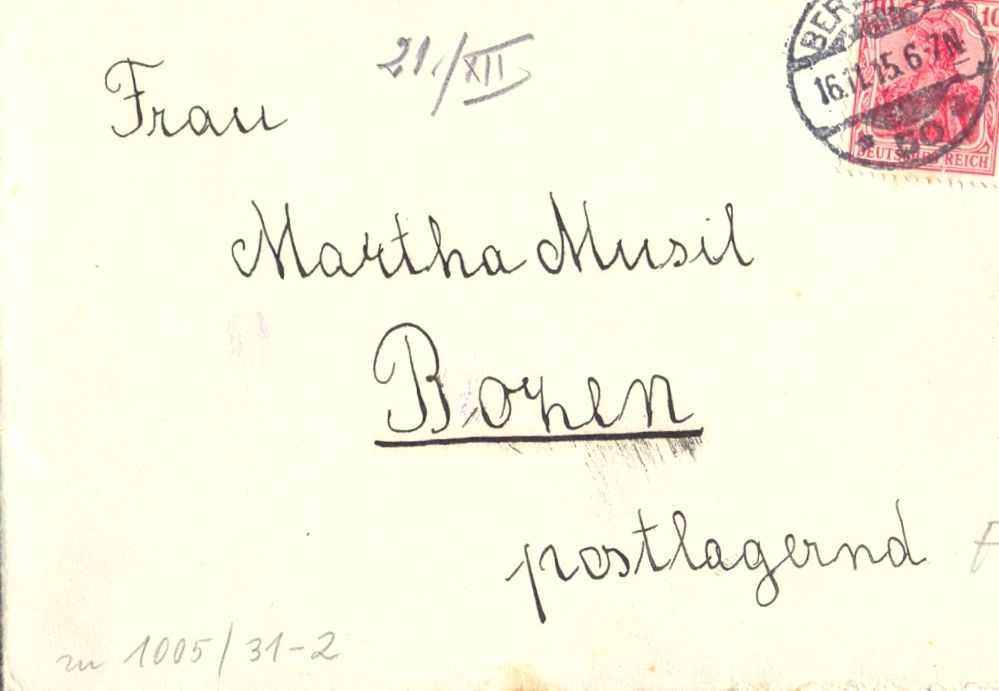 10 10
BER
16.11.15. 6-7N
* 50 *
DEUTSCHES REICH
21./XII
Frau
Martha Musil
Bozen
postlagernd
zu 1005/31-2